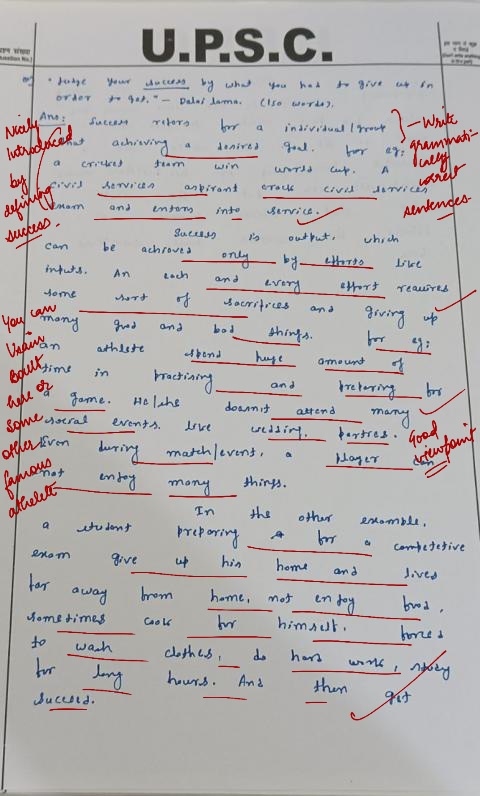 U.P.S.C.
"Judge your success by what you had to give up in
order to get." - Dalai Lama. (150 words).
Ans: Success refers for a individual/group
that achieving a desired goal. For eg:
a cricket team win world cup. A
civil services aspirant crack civil services
exam and enters into service.
Success is output, which
can be achieved only by efforts like
inputs. An each and every effort requires
some sort of sacrifices and giving up
many god and bad things. for eg:
an athlete spend huge amount of
time in practising and preparing for
a game. He/she doesnit attend many
social events. like wedding, parties.
Even during match/event, a player can
not enjoy many things.
In the other example,
a student preparing for a competetive
exam give up his home and lives
far away from home, not enjoy food,
sometimes cook for himself, forced
to wash clothes, do hard work, study
for long hours. And then get
success.
Nicely
Introduced
by
defining
success.
Write
grammati-
cally
correct
sentences
You can
Usain
Boult
here or
some
other
famous
athelete
Good
viewpoint